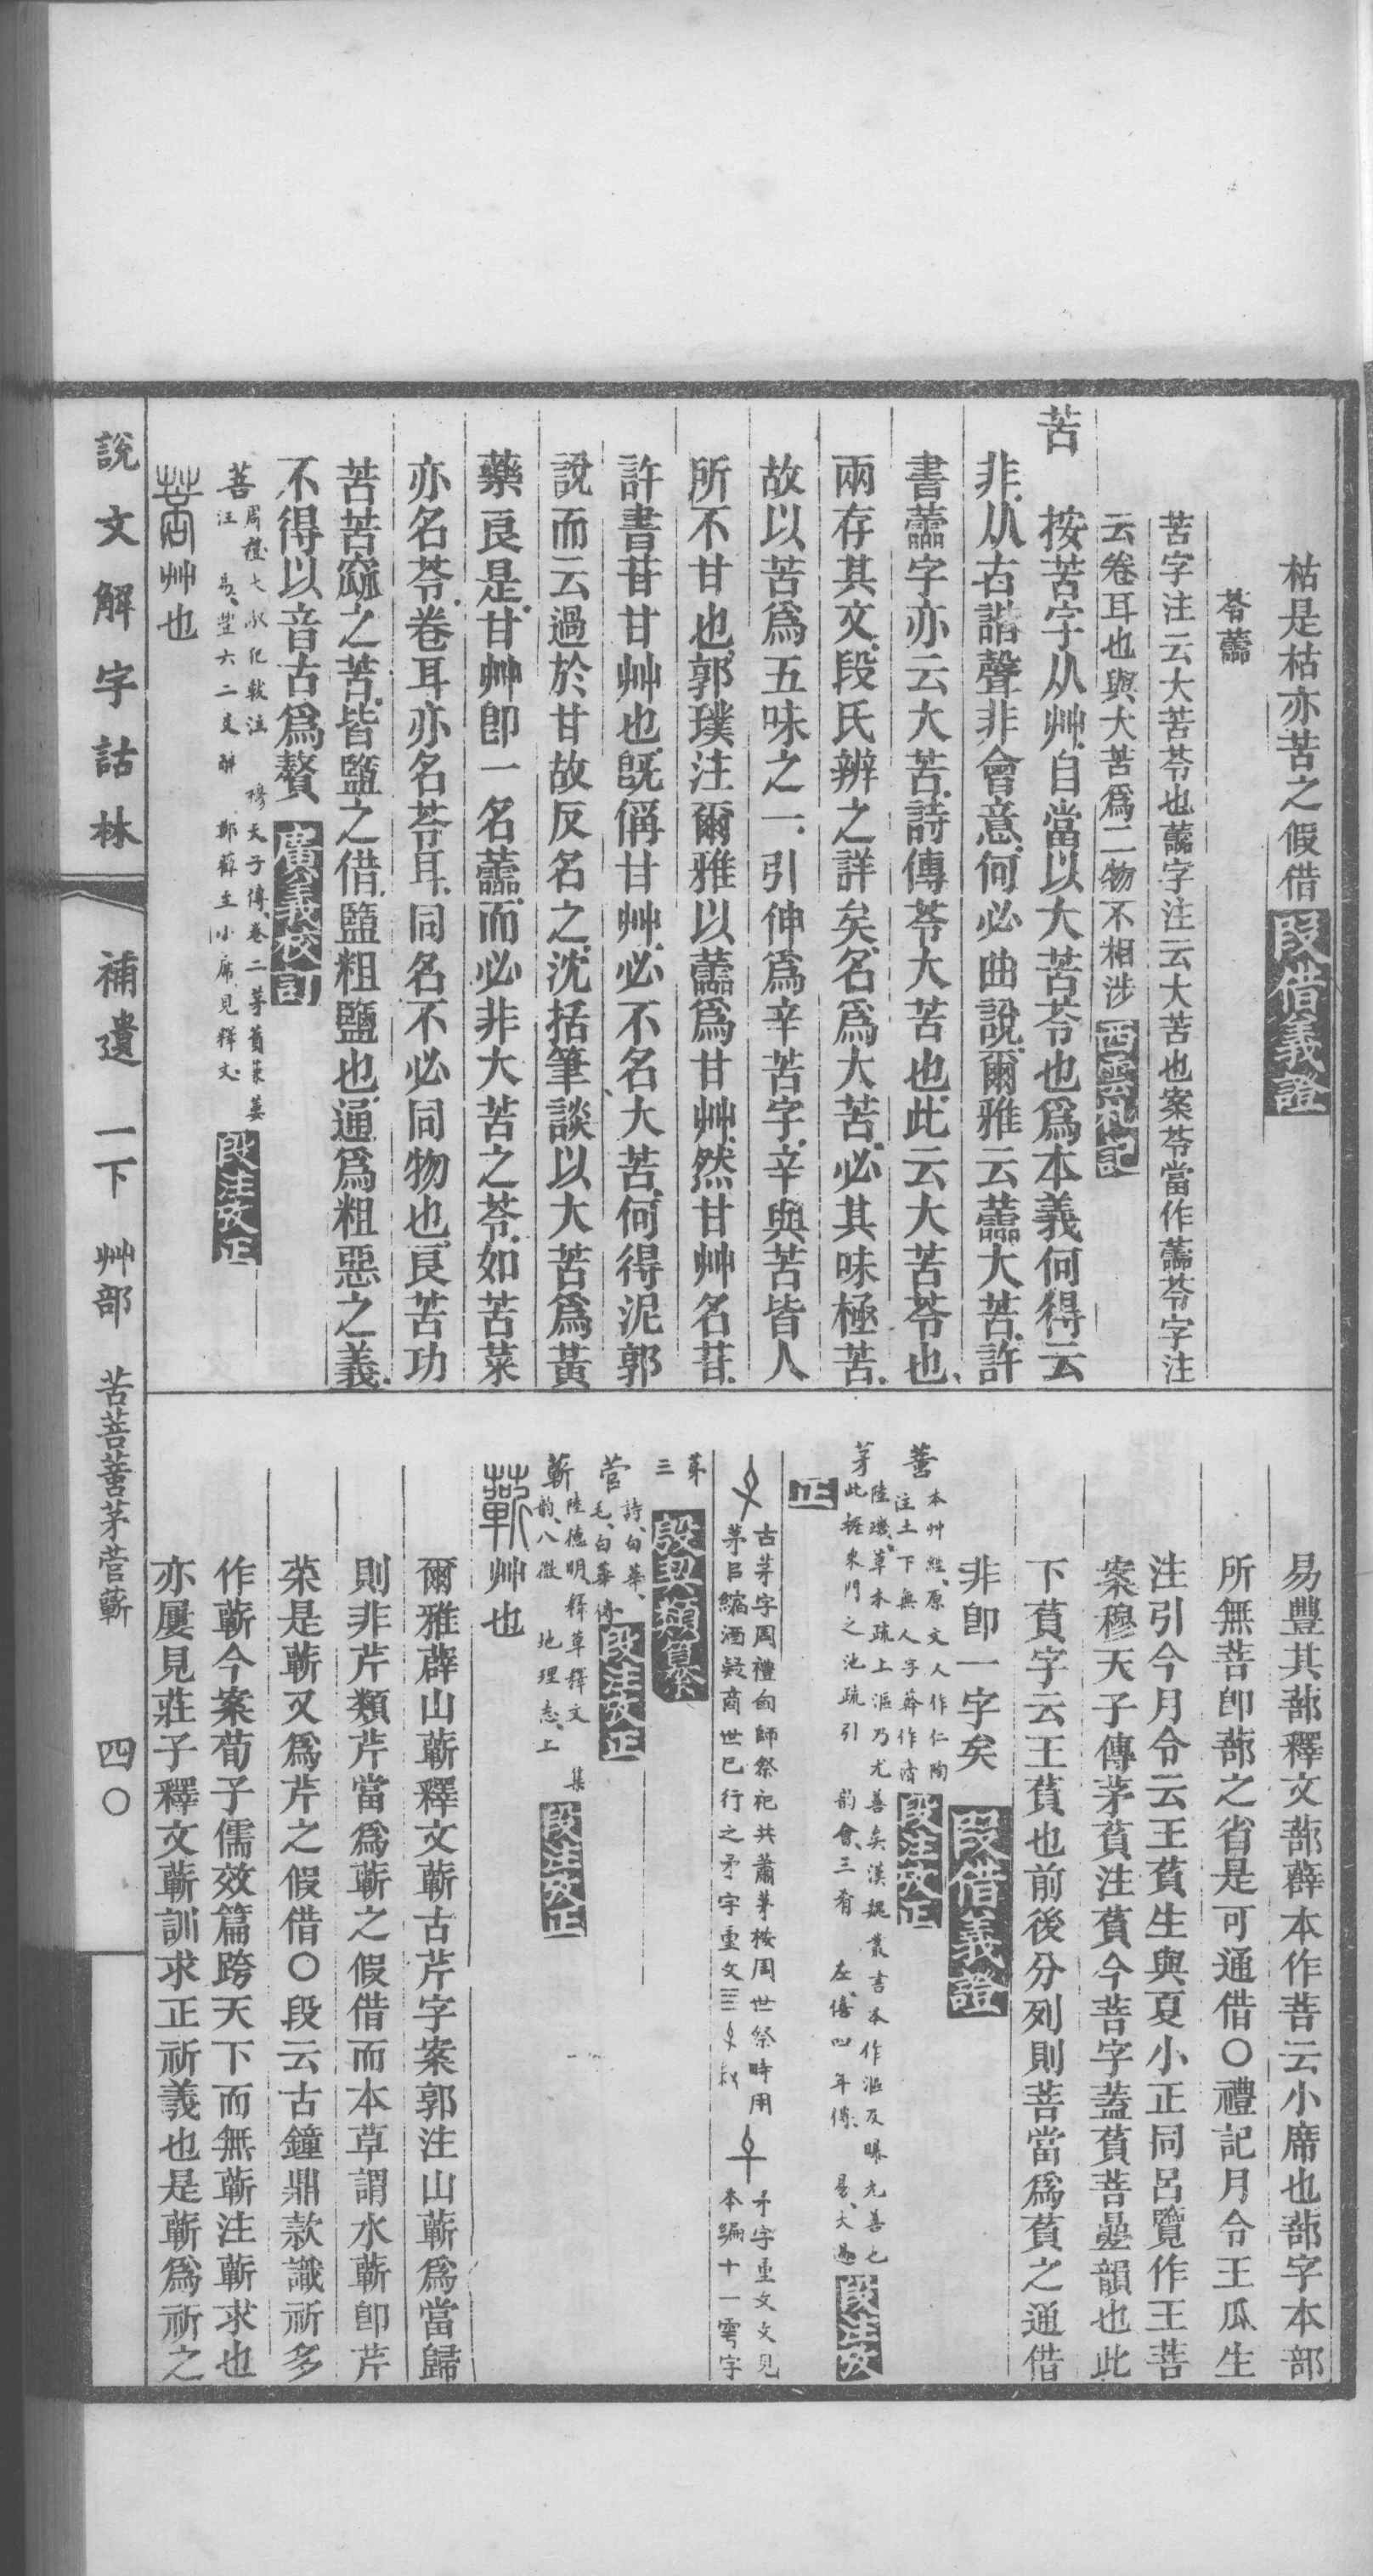 枯是枯亦苦之假借段借義證
苓蘦
苦字注云大苦苓也蘦字注云大苦也案苓當作蘦苓字注
云卷耳也與大苦爲二物不相涉西雲札記
苦　按苦字从艸自當以大苦苓也爲本義何得云
非从古諧聲非會意何必曲說爾雅云蘦大苦許
書蘦字亦云大苦詩傳苓大苦也此云大苦苓也
兩存其文段氏辨之詳矣名爲大苦必其味極苦
故以苦爲五味之一引伸爲辛苦字辛與苦皆人
所不甘也郭璞注爾雅以蘦爲甘艸然甘艸名苷
許書苷甘艸也旣偁甘艸必不名大苦何得泥郭
說而云過於甘故反名之沈括筆談以大苦爲黃
藥良是甘艸卽一名蘦而必非大苦之苓如苦菜
亦名苓卷耳亦名苓耳同名不必同物也良苦功
苦苦窳之苦皆盬之借盬粗鹽也通爲粗惡之義
不得以音古爲贅廣義校訂
菩　周禮大馭犯軷注　穆天子傳卷二茅萯菉蔞
注　易豐六二爻辭　鄭薛主小席見釋文段注攷正
菩艸也
易豐其蔀釋文蔀薛本作菩云小席也蔀字本部
所無菩卽蔀之省是可通借〇禮記月令王瓜生
注引今月令云王萯生與夏小正同呂覽作王菩
案穆天子傳茅萯注萯今菩字蓋萯菩疊韻也此
下萯字云王萯也前後分列則菩當爲萯之通借
非卽一字矣段借義證
蓍　本艸經原文人作仁陶
注土下無人字莽作淸段注攷正
茅　陸璣草木疏上漚乃尤善矣漢魏叢書本作漚及曝尤善也
此據東門之池疏引　韵會三肴　左僖四年傳　易大過段注攷
正
古茅字周禮甸師祭祀共蕭茅按周世祭時用
茅㠯縮酒疑商世已行之矛字重文三
矛字重文文見
本編十一雩字
弟
三殷契類纂
菅　詩白華
毛白華傳段注攷正
蘄　陸德明釋草釋文　集
韵八微　地理志上段注攷正
蘄艸也
爾雅薜山蘄釋文蘄古芹字案郭注山蘄爲當歸
則非芹類芹當爲蘄之假借而本草謂水蘄卽芹
菜是蘄又爲芹之假借〇段云古鐘鼎款識祈多
作蘄今案荀子儒效篇跨天下而無蘄注蘄求也
亦屢見莊子釋文蘄訓求正祈義也是蘄爲祈之
說文解字詁林　補遺　一下　艸部　苦菩蓍茅菅蘄　四〇